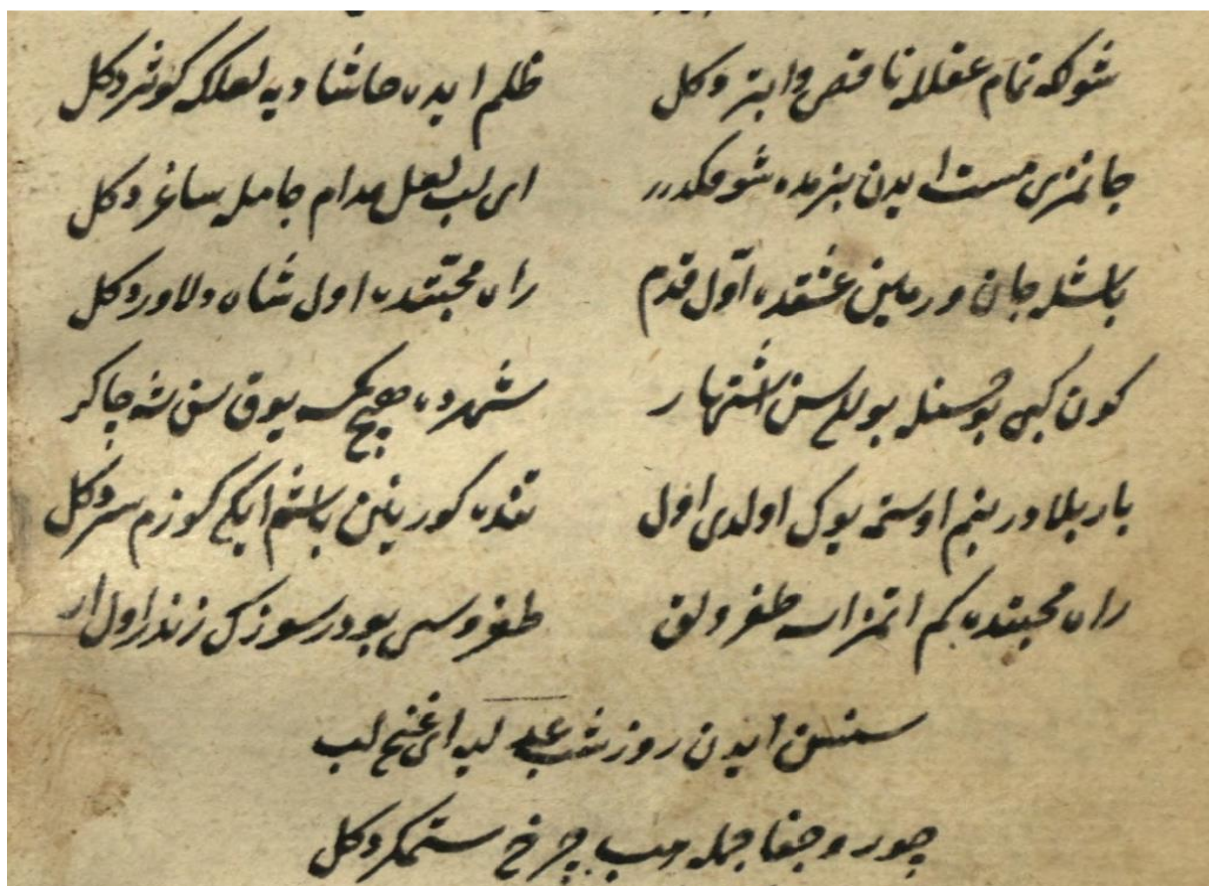 شوكه تمام عقللا ناقص و ابتر دكل ظلم ايده حاشا ديه لعلكه كوثر دكل
جانمزى مست ايدن بزمده شو مكدر اى لب لعل مدام جامله ساغر دكل
باشله جان ويرمين عشقده اول قدم راه محبتده اول شاه دلاور دكل
كون كبى بو حسنله بولدى سن اشتهار شهرده هيچ كمسه يوق سن شه چاكر
بار بلا در بنم اوستمه يوك اولدى اول تنده كورينن باشم ايكى كوزم سر دكل
راه محبتده كم اتمز ايسه طغرولق طغروسى بودر سوزك زنداول ار
سنسن ايدن روز شب لب اى غنچه لب
جور و جفا جمله هب چرخ ستمكر دكل